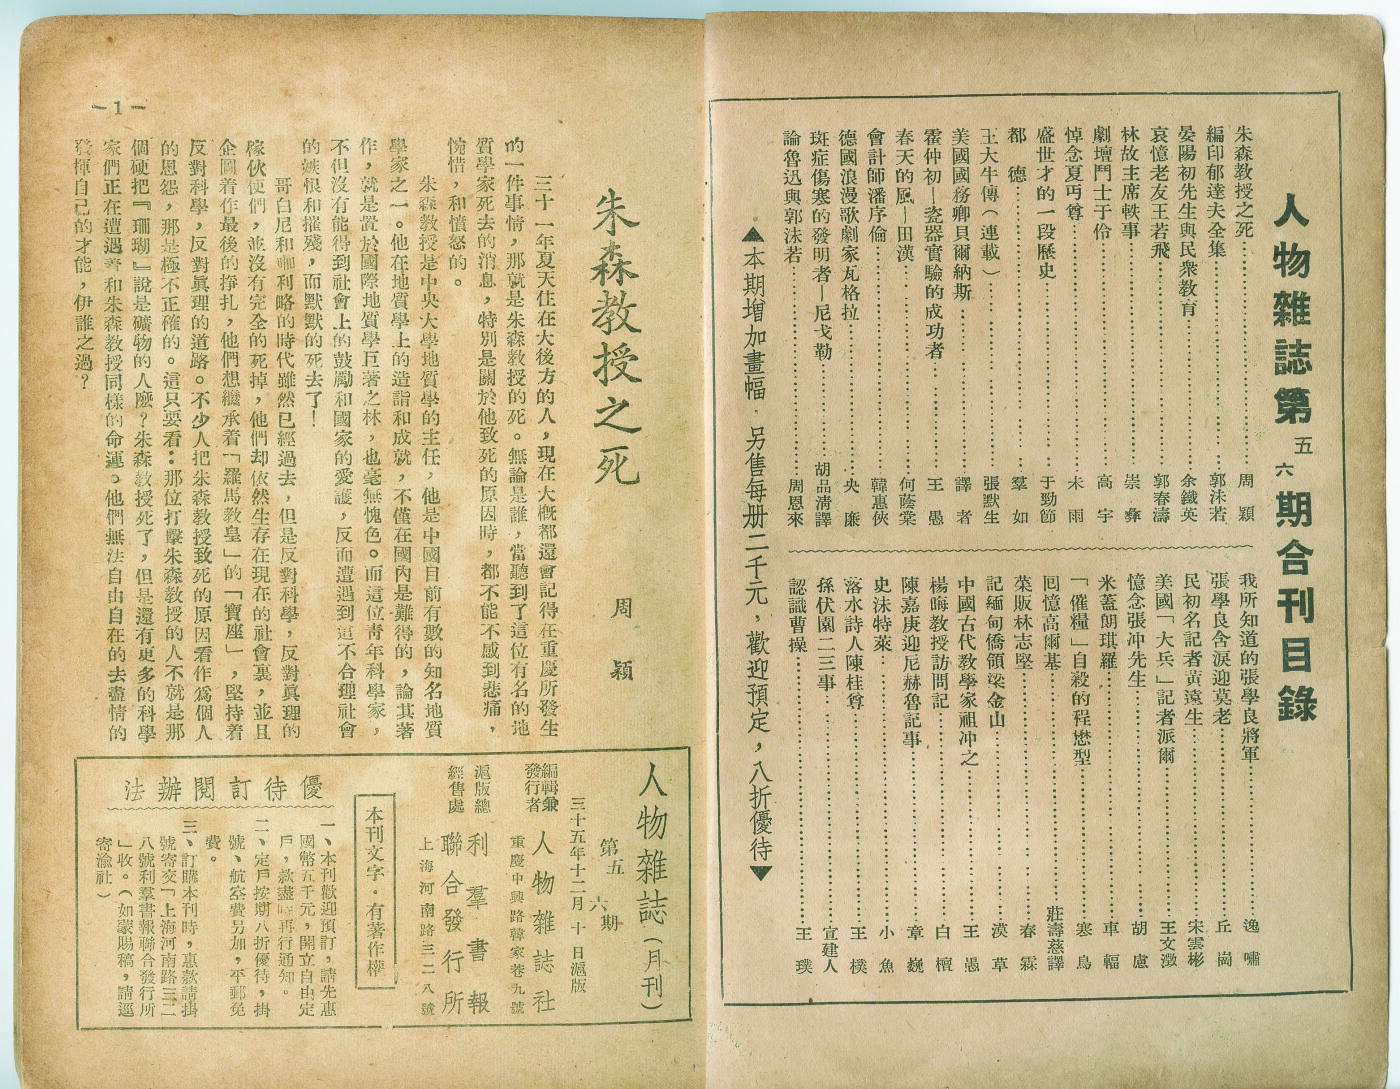 人物雜誌第五六期合刊目錄
朱森教授之死……周穎
編印郁達夫全集……郭沫若
晏陽初先生與民衆教育……余鐵英
哀憶老友王若飛……郭春濤
林故主席軼事……崇彝
劇壇鬥士于伶……高宇
悼念夏丏尊……未雨
盛世才的一段歷史……于勁節
都德……羣如
王大牛傳(連載)……張默生
美國國務卿貝爾納斯……譯者
霍仲初—瓷器實驗的成功者……王愚
春天的風—田漢……何蔭棠
會計師潘序倫……韓惠俠
德國浪漫歌劇家瓦格拉……央廉
斑症傷寒的發明者—尼戈勒……胡品淸譯
論魯迅與郭沫若……周恩來
我所知道的張學良將軍……逸嘯
張學良含淚迎莫老……丘崗
民初名記者黃遠生……宋雲彬
美國「大兵」記者派爾……王文澂
憶念張冲先生……胡慮
米蓋朗琪羅……車輻
「催糧」自殺的程懋型……寒鳥
囘憶高爾基……莊壽慈譯
菜販林志堅……春霖
記緬甸僑領梁金山……漠草
中國古代數學家祖冲之……王愚
楊晦教授訪問記……白檀
陳嘉庚迎尼赫魯記事……章巍
史沫特萊……小魚
落水詩人陳桂尊……王樸
孫伏園二三事……宣建人
認識曹操……王璞
▲本期增加畫幅・另售每册二千元,歡迎預定,八折優待▼
—1—
朱森教授之死
周穎
三十一年夏天住在大後方的人,現在大概都還會記得在重慶所發生
的一件事情,那就是朱森教授的死。無論是誰,當聽到了這位有名的地
質學家死去的消息,特別是關於他致死的原因時,都不能不感到悲痛,
惋惜,和憤怒的。
朱森教授是中央大學地質學的主任,他是中國目前有數的知名地質
學家之一。他在地質學上的造詣和成就,不僅在國內是難得的,論其著
作,就是置於國際地質學巨著之林,也毫無愧色。而這位靑年科學家,
不但沒有能得到社會上的鼓勵和國家的愛護,反而遭遇到這不合理社會
的嫉恨和摧殘,而默默的死去了!
哥白尼和咖利略的時代雖然已經過去,但是反對科學,反對眞理的
傢伙便們,並沒有完全的死掉,他們却依然生存在現在的社會裏,並且
企圖着作最後的掙扎,他們想繼承着「羅馬教皇」的「寶座」,堅持着
反對科學,反對眞理的道路。不少人把朱森教授致死的原因看作爲個人
的恩怨,那是極不正確的。這只要看:那位打擊朱森教授的人不就是那
個硬把『珊瑚』說是礦物的人麽?朱森教授死了,但是還有更多的科學
家們正在遭遇着和朱森教授同樣的命運。他們無法自由自在的去盡情的
發揮自己的才能,伊誰之過?
人物雜誌(月刊)
第五六期
三十五年十二月十日滬版
編輯兼發行者 人物雜誌社
重慶中興路韓家巷九號
滬版總經售處 利羣書報聯合發行所
上海河南路三二八號
本刊文字・有著作權
優待訂閱辦法
一、本刊歡迎預訂,請先惠
國幣五千元,開立自由定
戶,款盡時再行通知。
二、定戶按期八折優待,掛
號、航空費另加,平郵免
費。
三、訂購本刊時,惠款請掛
號寄交「上海河南路三二
八號利羣書報聯合發行所
」收。(如蒙賜稿,請逕
寄渝社)